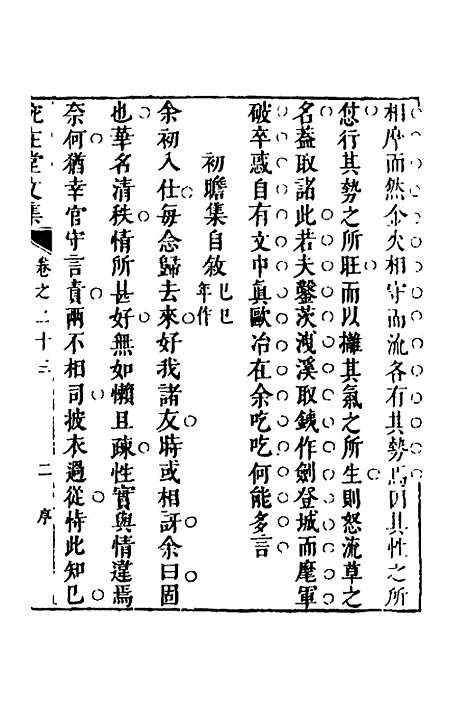 相摩而然金火相守而流各有其勢焉因其性之所
愆行其勢之所旺而以摧其氣之所生則怒流草之
名蓋取諸此若夫鑿茨洩溪取鐵作劍登城而麾軍
破卒惑自有文中眞歐冶在余吃吃何能多言
初瞻集自敘 己巳年作
余初入仕每念歸去來好我諸友時或相訝余曰固
也華名清秩情所甚好無如懶且疎性實與情違焉
奈何猶幸官守言責兩不相司披衣過從恃此知已
在堂文集 卷之二十三 二 序